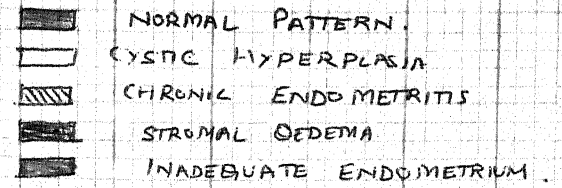 NORMAL PATTERN.
CYSTIC HYPERPLASIA
CHRONIC ENDOMETRITIS
STROMAL OEDEMA
INADEQUATE ENDOMETRIUM.